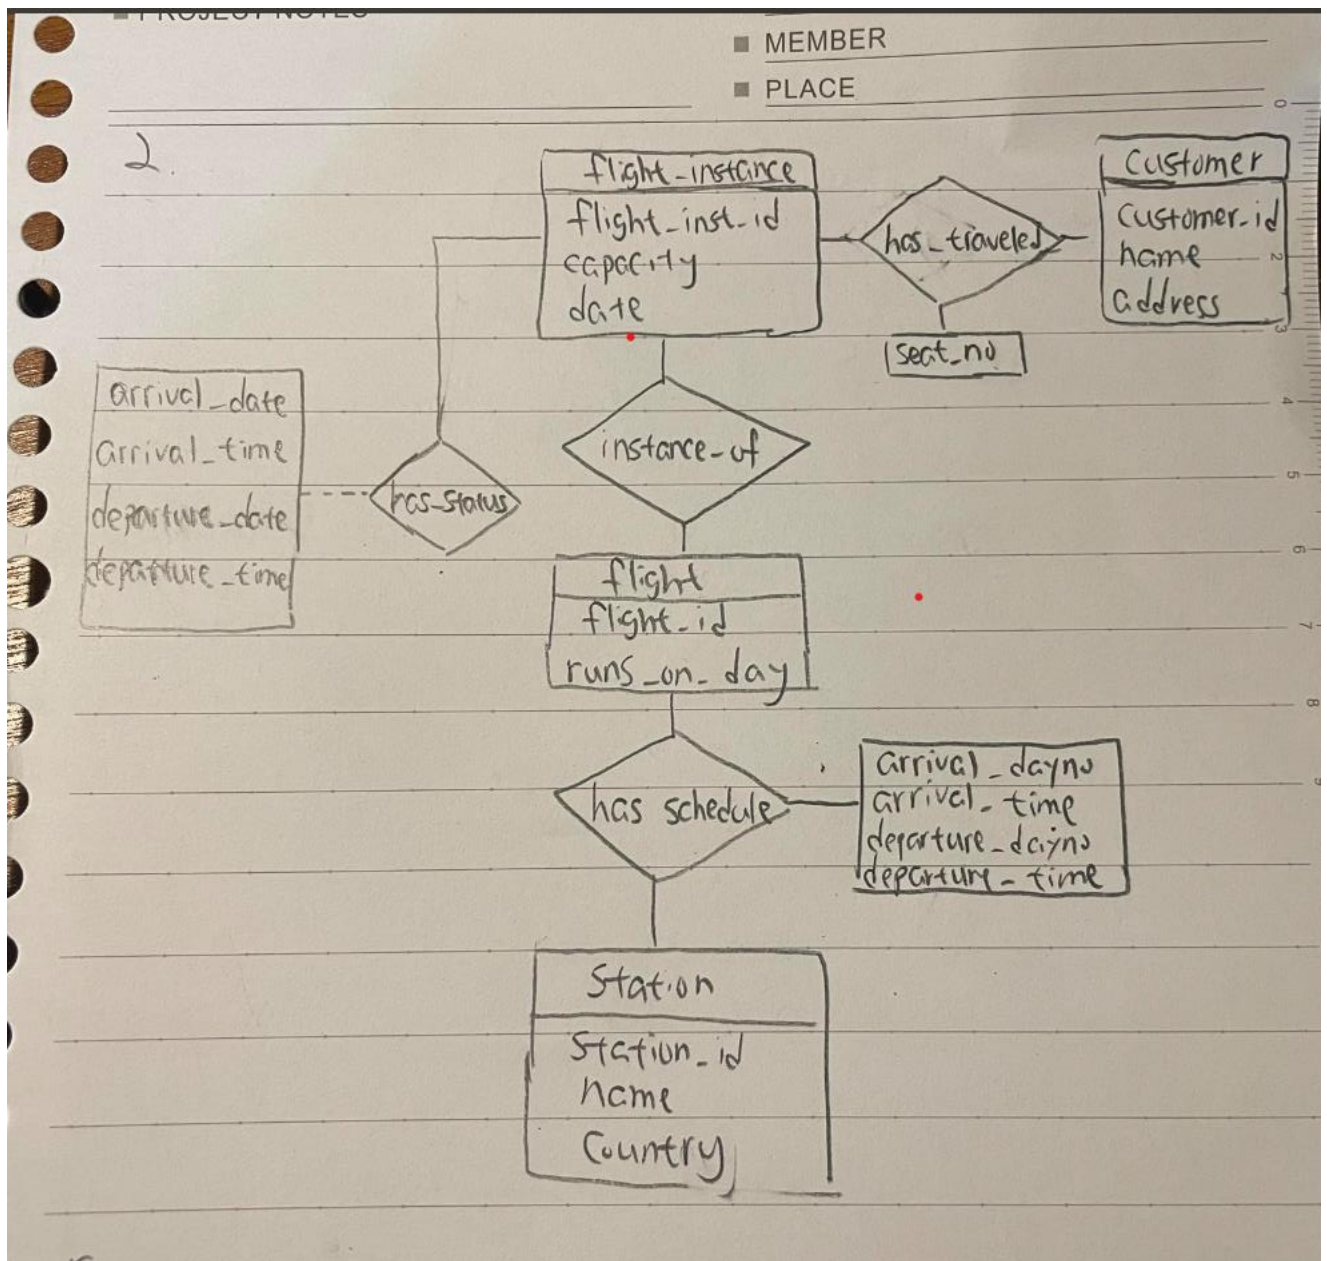 PROJECT NOTES
MEMBER
PLACE
0
2.
flight_instance
flight_inst_id
capacity
date
has_traveled
seat_no
customer
customer_id
name
address
2
3
4
5
6
7
8
9
arrival_date
arrival_time
departure_date
departure_time
has_status
instance_of
flight
flight_id
runs_on_day
has schedule
arrival_dayno
arrival_time
departure_dayno
departure_time
Station
Station_id
name
Country